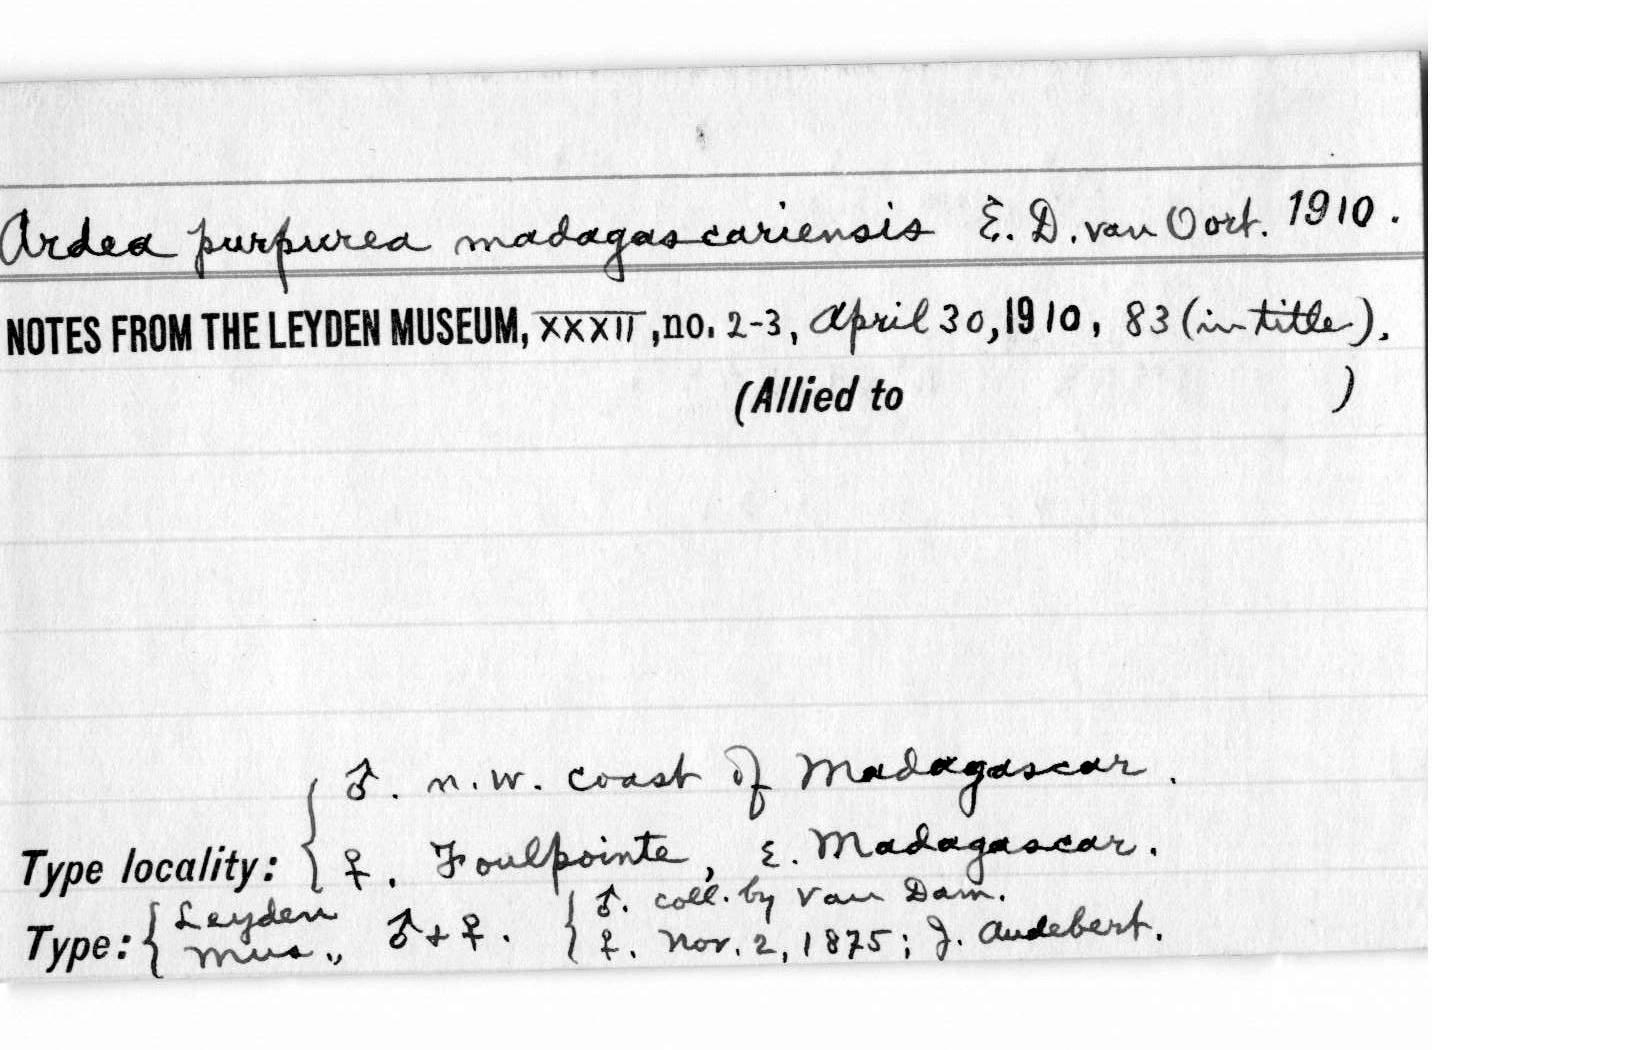 Ardea purpurea madagascariensis E. D. van Oort. 1910.
NOTES FROM THE LEYDEN MUSEUM, XXXII, no. 2-3, April 30, 1910, 83 (in title).
(Allied to )
♂. n.w. coast of Madagascar.
Type locality: { ♀. Foulpointe, E. Madagascar.
Type: { Leyden Mus., ♂ + ♀. { ♂. coll. by Van Dam.
♀. Nov. 2, 1875; J. Audebert.